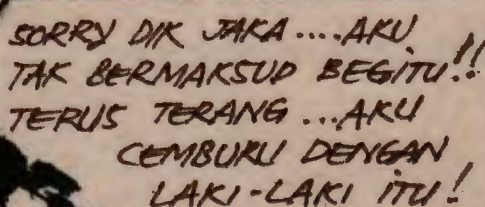 SORRY DIK JAKA....AKU
TAK BERMAKSUD BEGITU!!
TERUS TERANG...AKU
CEMBURU DENGAN
LAKI-LAKI ITU!